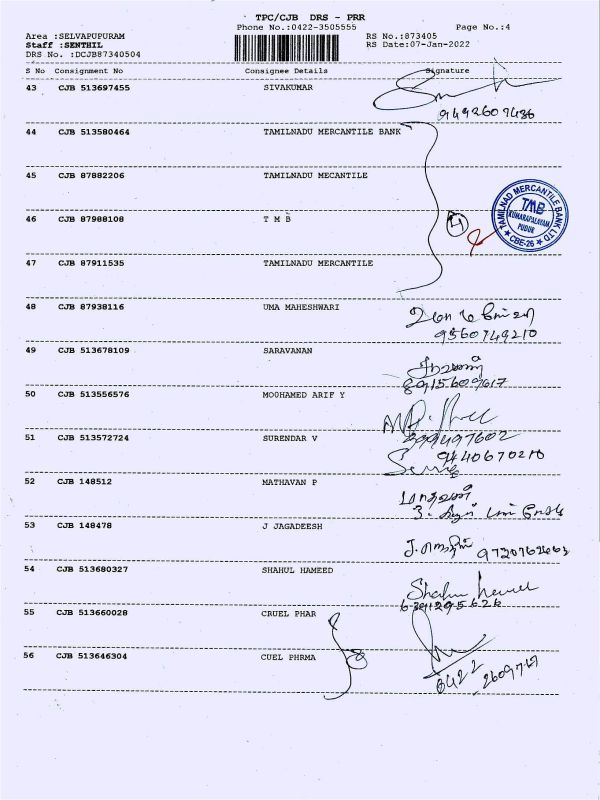 TPC/CJB DRS - PRR
Phone No.:0422-3505555 Page No.:4
Area :SELVAPUPURAM RS No.:873405
Staff :SENTHIL RS Date:07-Jan-2022
DRS No. :DCJB87340504
S No Consignment No Consignee Details Signature
43 CJB 513697455 SIVAKUMAR
9492607486
44 CJB 513580464 TAMILNADU MERCANTILE BANK
45 CJB 87882206 TAMILNADU MECANTILE
TAMILNAD MERCANTILE BANK LTD
TMB
KUMARAPALAYAM
PUDUR
CBE-26
46 CJB 87988108 T M B 4
47 CJB 87911535 TAMILNADU MERCANTILE
48 CJB 87938116 UMA MAHESHWARI
9560749210
49 CJB 513678109 SARAVANAN
சரவணன்
8915609617
50 CJB 513556576 MOOHAMED ARIF Y
51 CJB 513572724 SURENDAR V
9440670210
52 CJB 148512 MATHAVAN P
மாதவன்
53 CJB 148478 J JAGADEESH
54 CJB 513680327 SHAHUL HAMEED
Shahul
55 CJB 513660028 CRUEL PHAR
56 CJB 513646304 CUEL PHRMA
0422